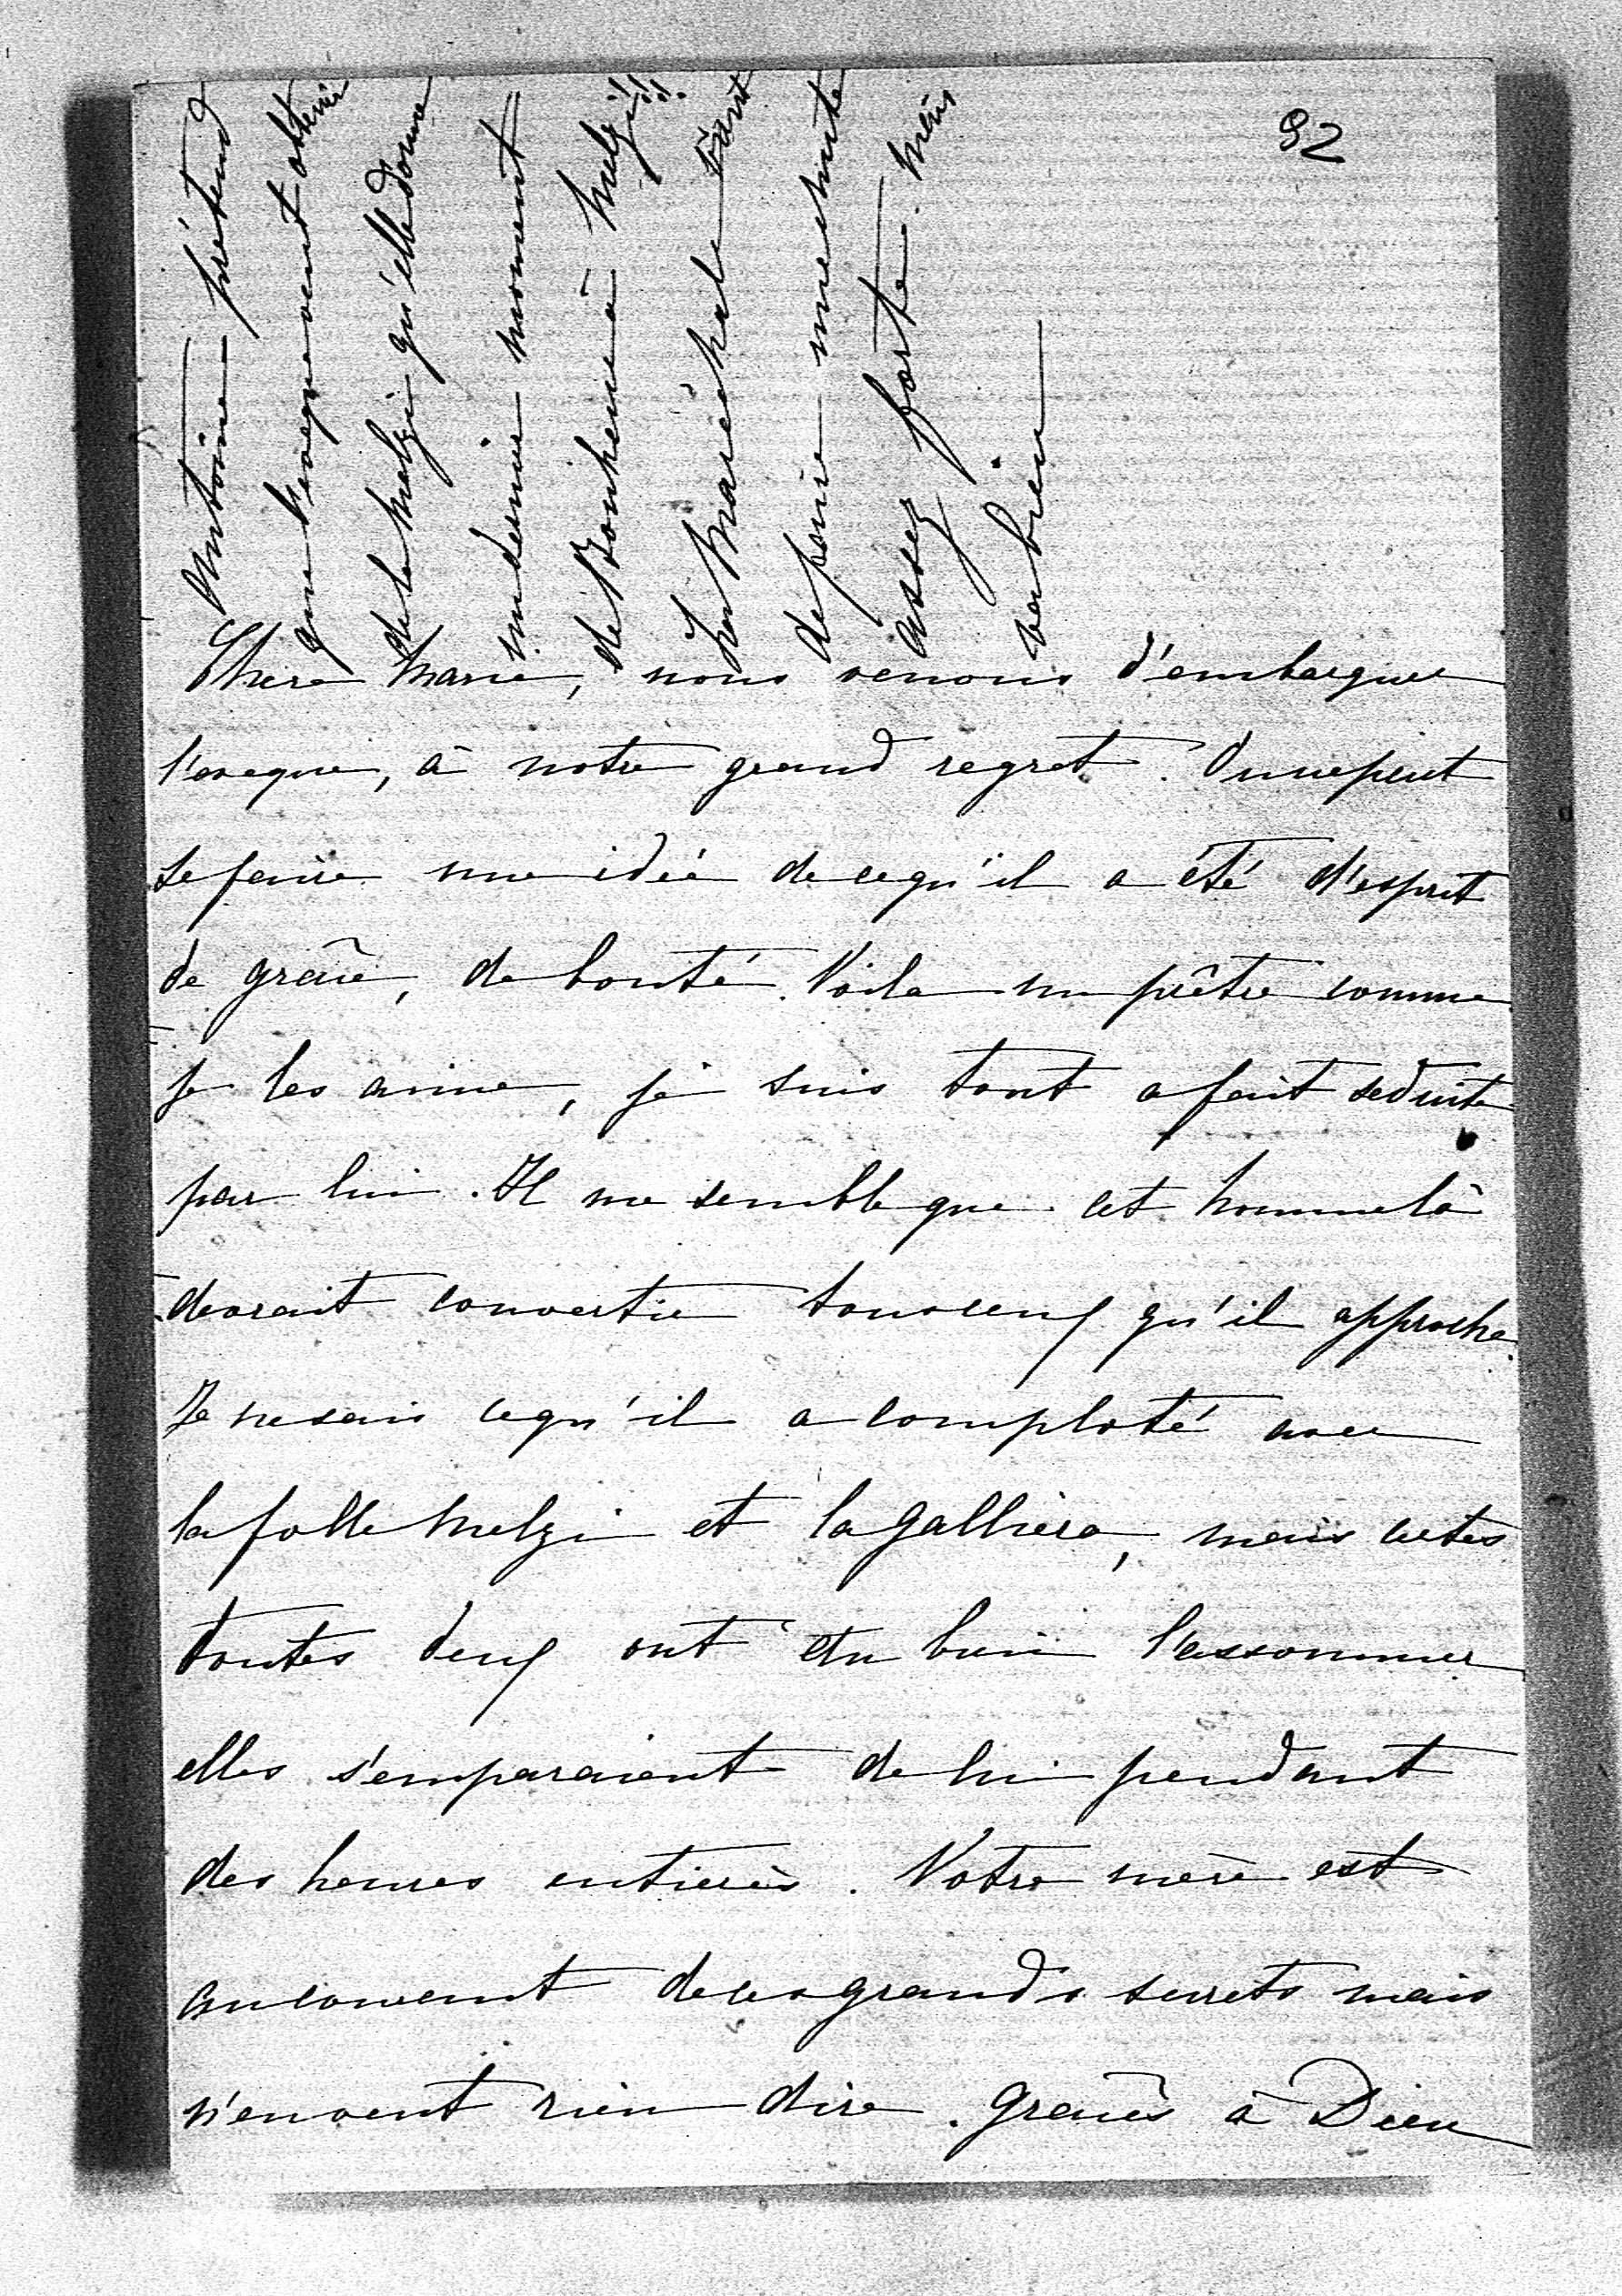 92
Chere Marie, nous venons d'embarquer
l'eveque, à notre grand regret. On ne peut
se faire une idée de ce qu'il a été d'esprit
de grace, de bonté. Voila un prêtre comme
je les aime, je suis tout a fait seduite
par lui. Il me semble que cet homme là
devrait convertir tous ceux qu'il approche.
Je ne sais ce qu'il a comploté avec
la folle Melzi et la Galliera, mais certes
toutes deux ont du bien l'assommer
elles s'emparaient de lui pendant
des heures entières. Votre mère est
au courant de ces grands secrets mais
n'en veut rien dire. Graces à Dieu
Antoine prétend
que l'eveque veut obtenir
de la Melzi qu'elle donne
un dernier moment
de bonheur à Melzi!!!
La Maréchale vient
de faire une chute
assez forte. Mais
va bien